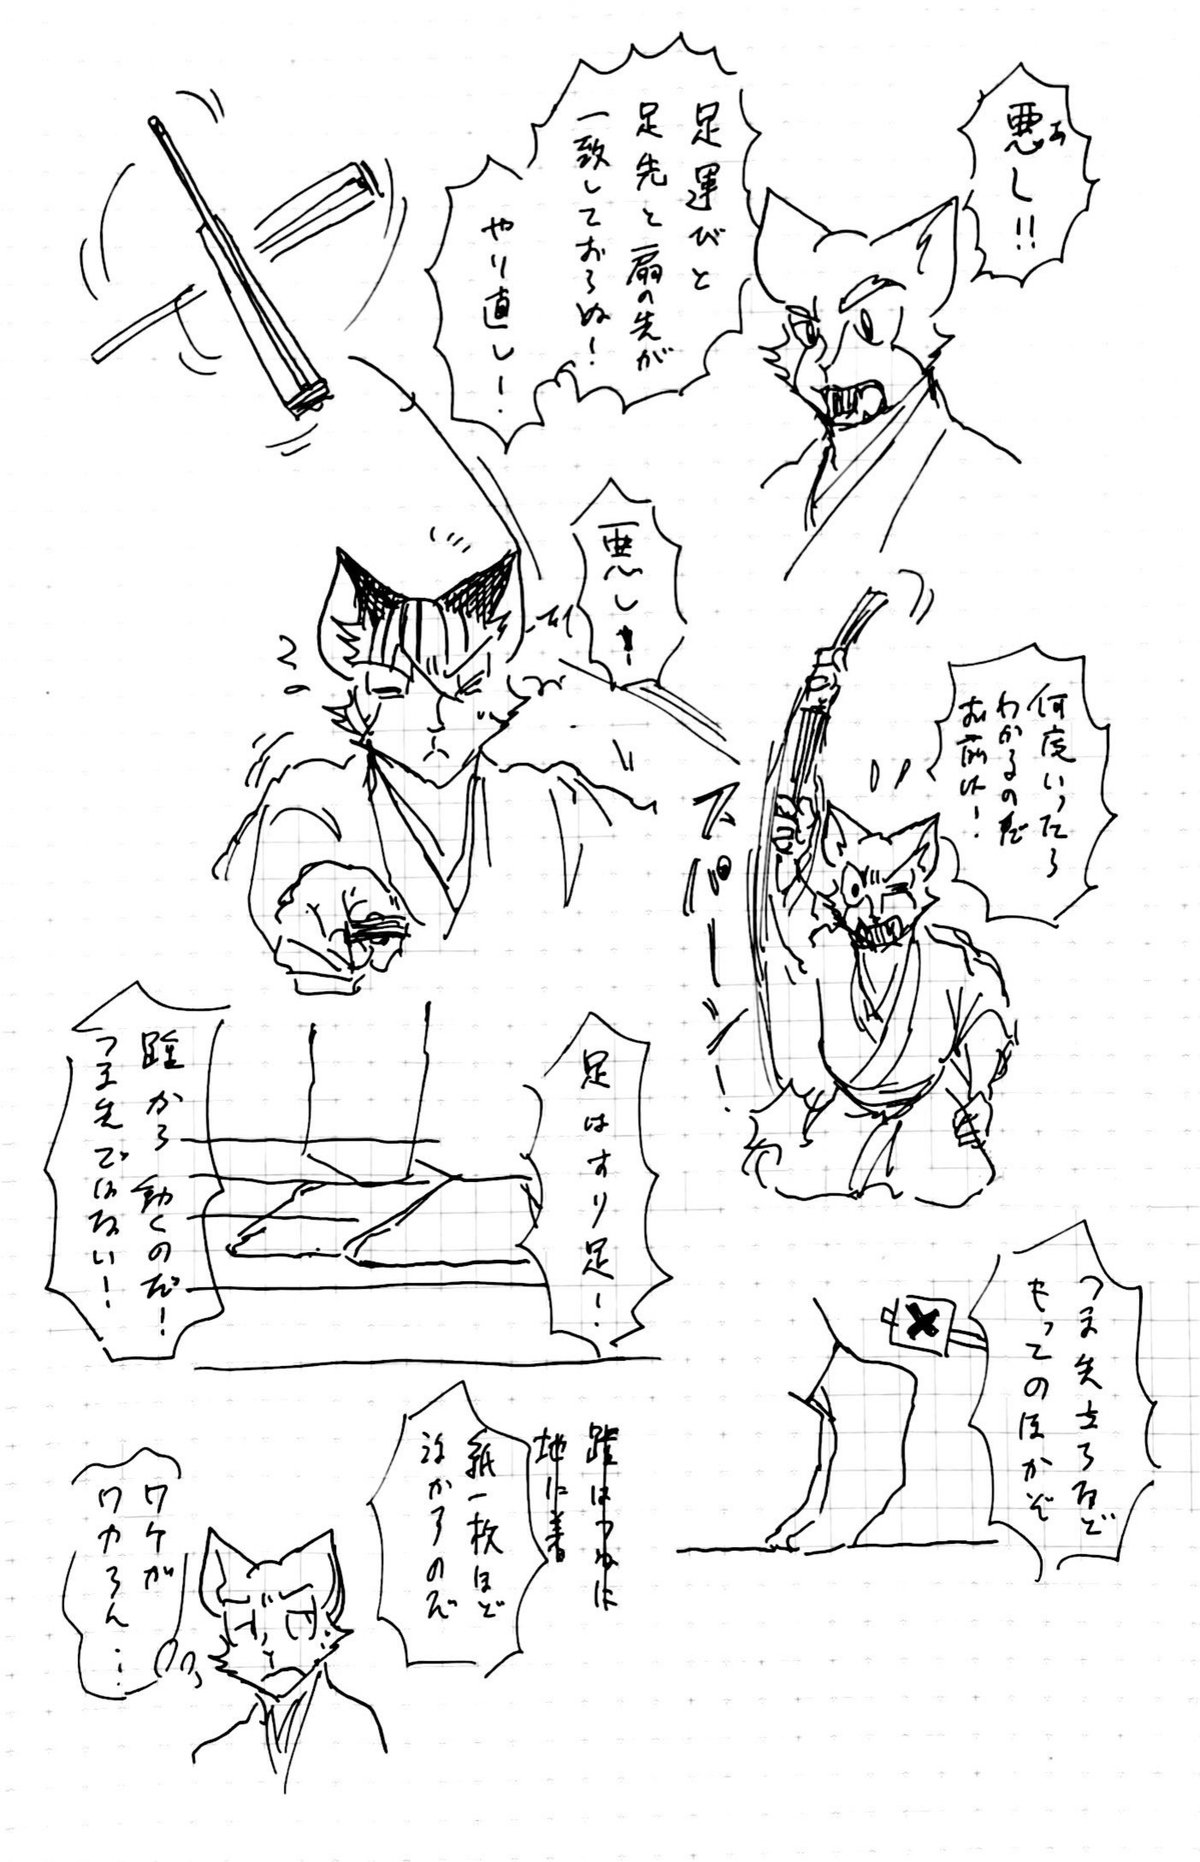 悪し!!
あ
足運びと
足先と扇の先が
一致しておらぬ!
やり直し!
悪し!
何度いったら
わかるのだ
お前は!
スパーン!
足はすり足!
踵から動くのだ!
つま先ではない!
つま先立ちなど
もってのほかぞ
踵はつねに
地に着
紙一枚ほど
浮かすのだ
ワケが
ワカらん…